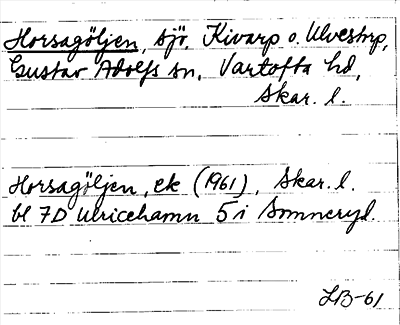 Horsagöljen, sjö, Kivarp o. Ulvestorp,
Gustav Adolfs sn, Vartofta hd,
Skar. l.
Horsagöljen, ek (1961), Skar. l.
bl 7D Ulricehamn 5 i Sömneryd.
LB-61